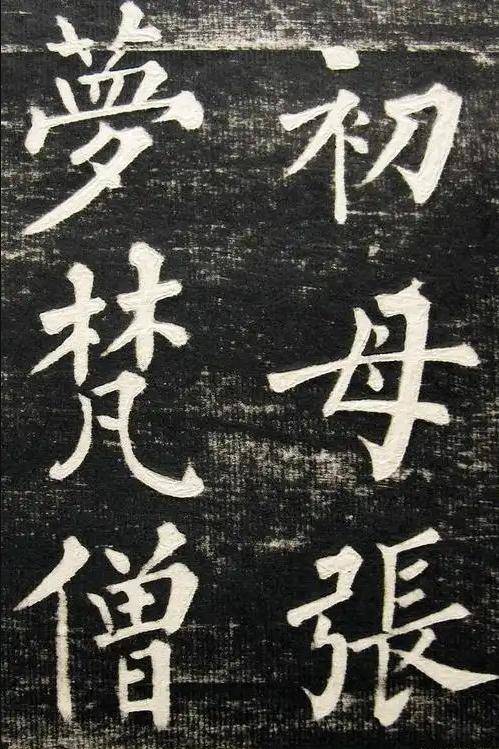 初母張
夢梵僧